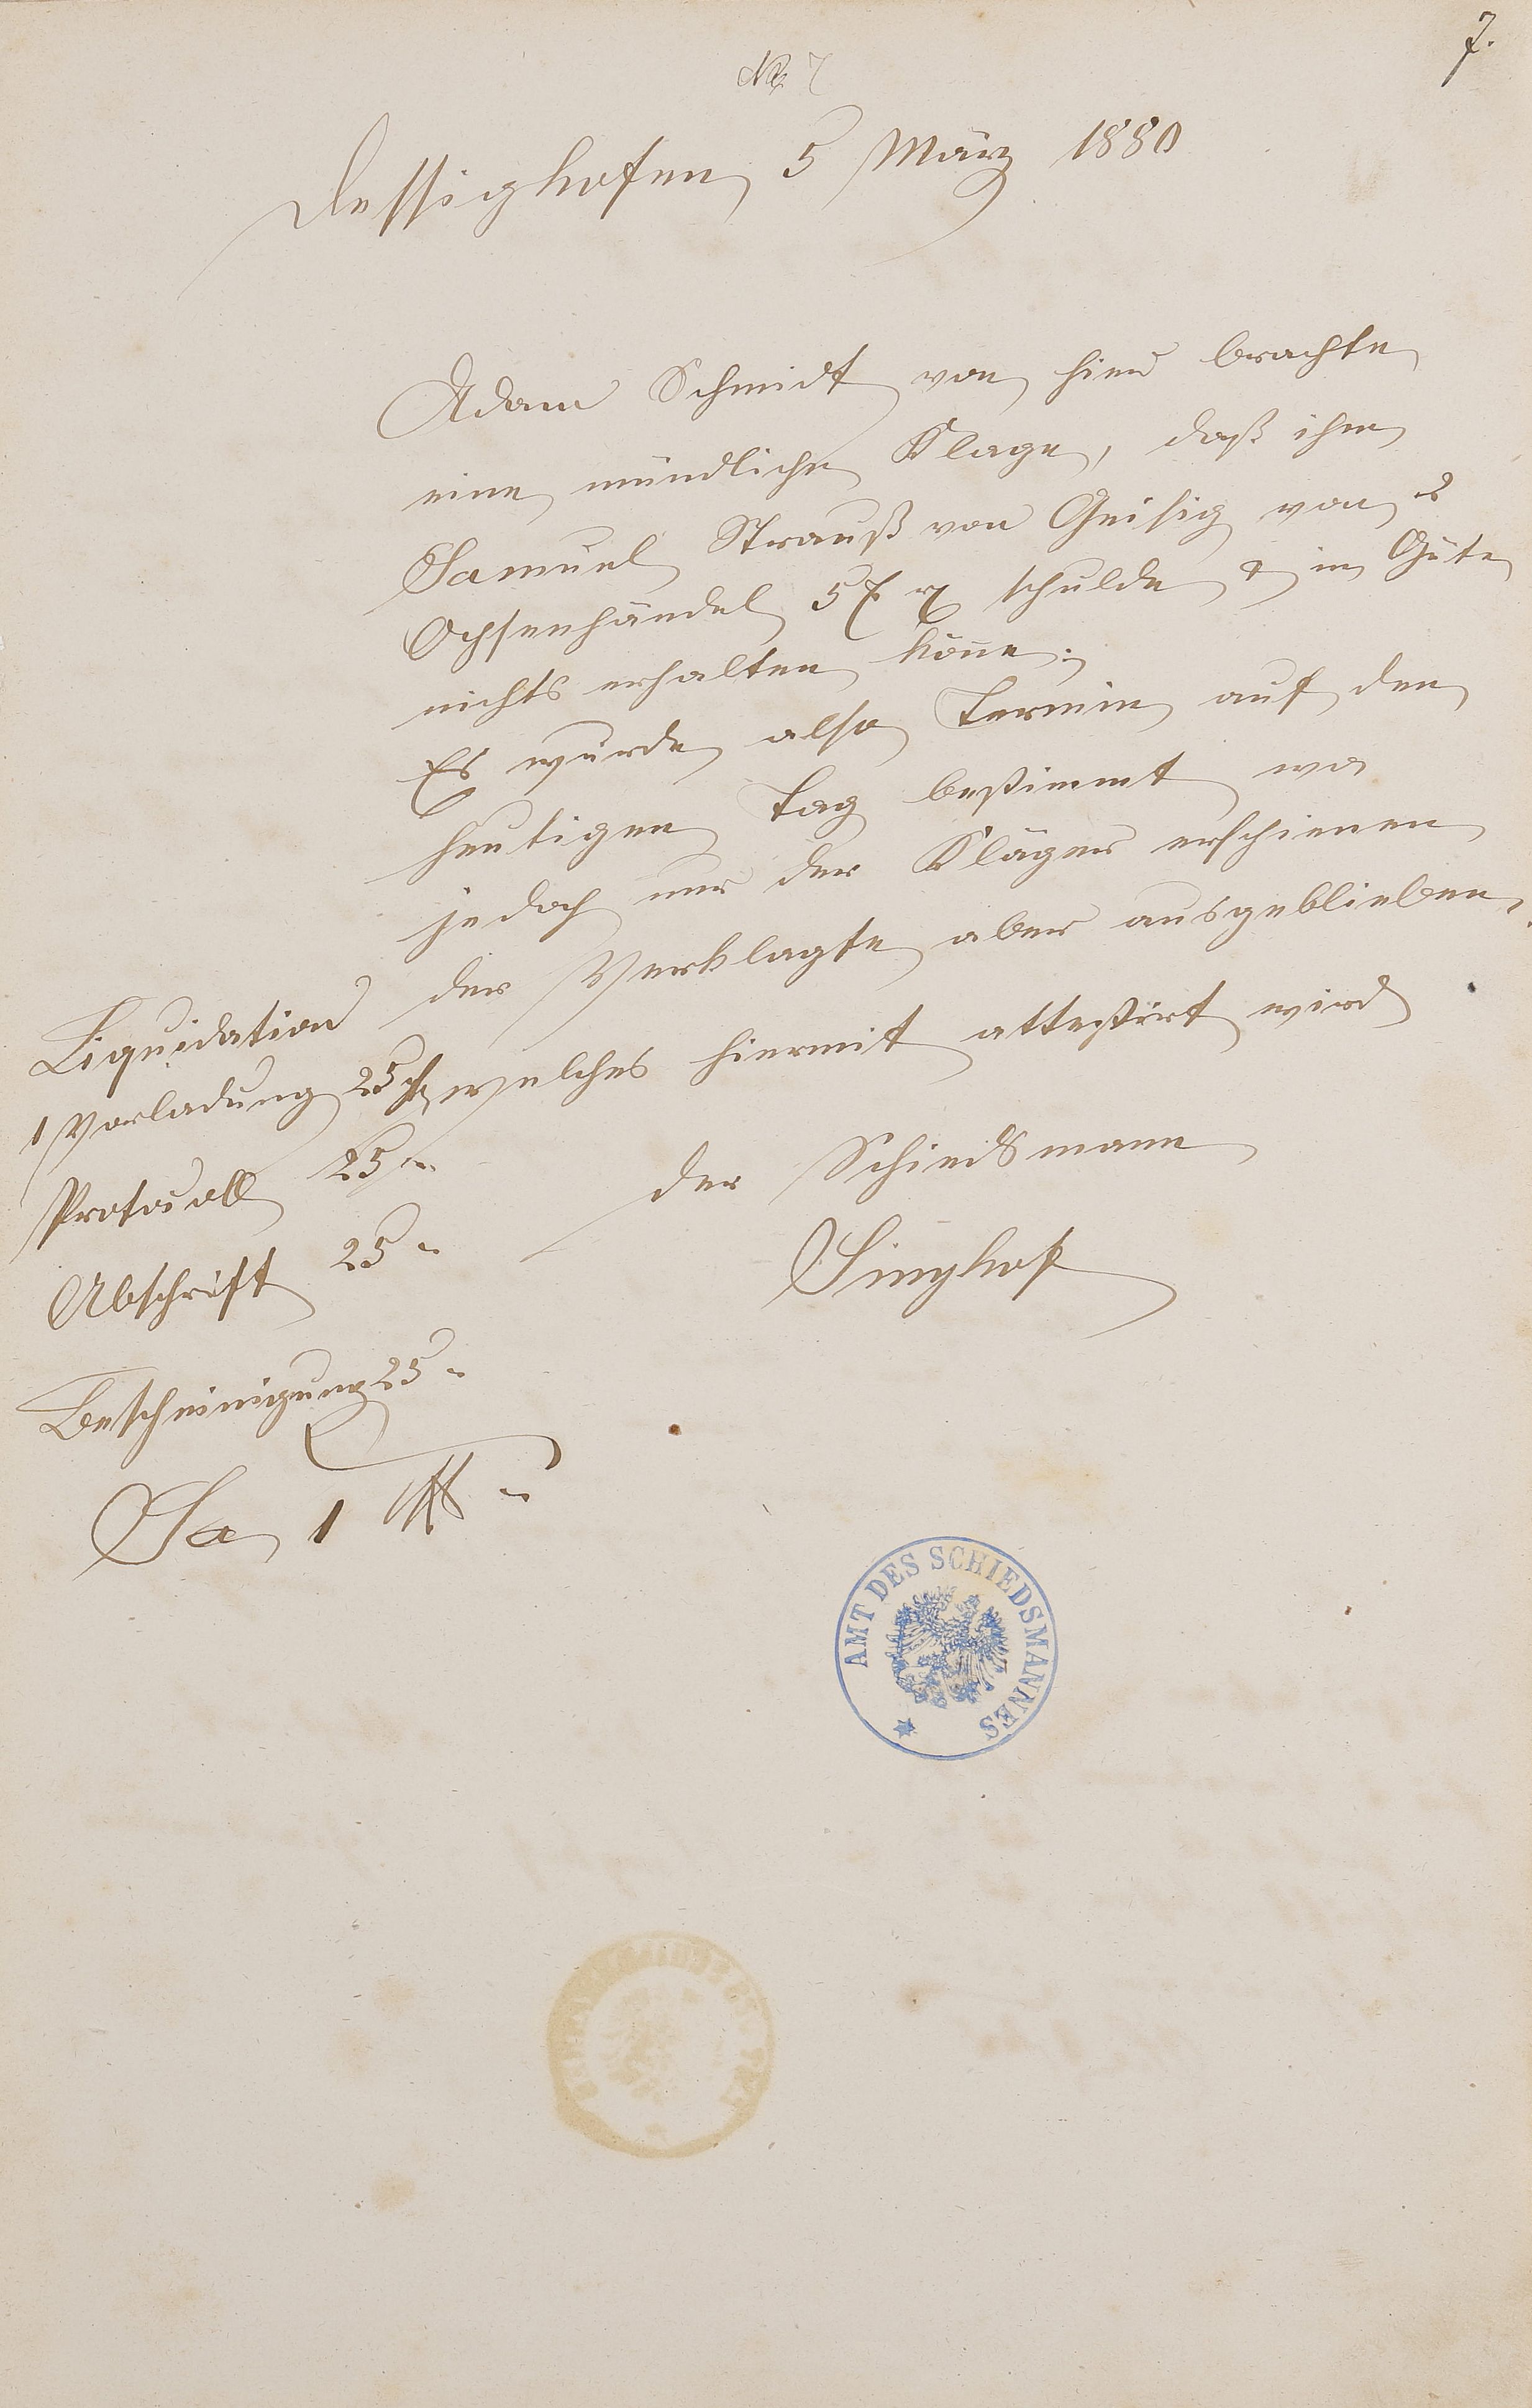 7.
No 7
Dessighofen, 5 März 1880
Adam Schmidt von hier brachte
eine mündliche Klage, daß ihm
Samuel Strauß von Geisig von
Ochsenhändel schulde & in Güte
nichts erhalten köne.
Es wurde also Termin auf den
heutigen Tag bestimmt wo
jedoch nur der Kläger erschienen
der Verklagte aber ausgeblieben,
welches hiermit attestirt wird
der Schiedsmann
Singhof
Liquidation
1 Vorladung 25 Pf
Protocoll 25 "
Abschrift 25 "
Bescheinigung 25 "
Sa 1 M "
AMT DES SCHIEDSMANNES